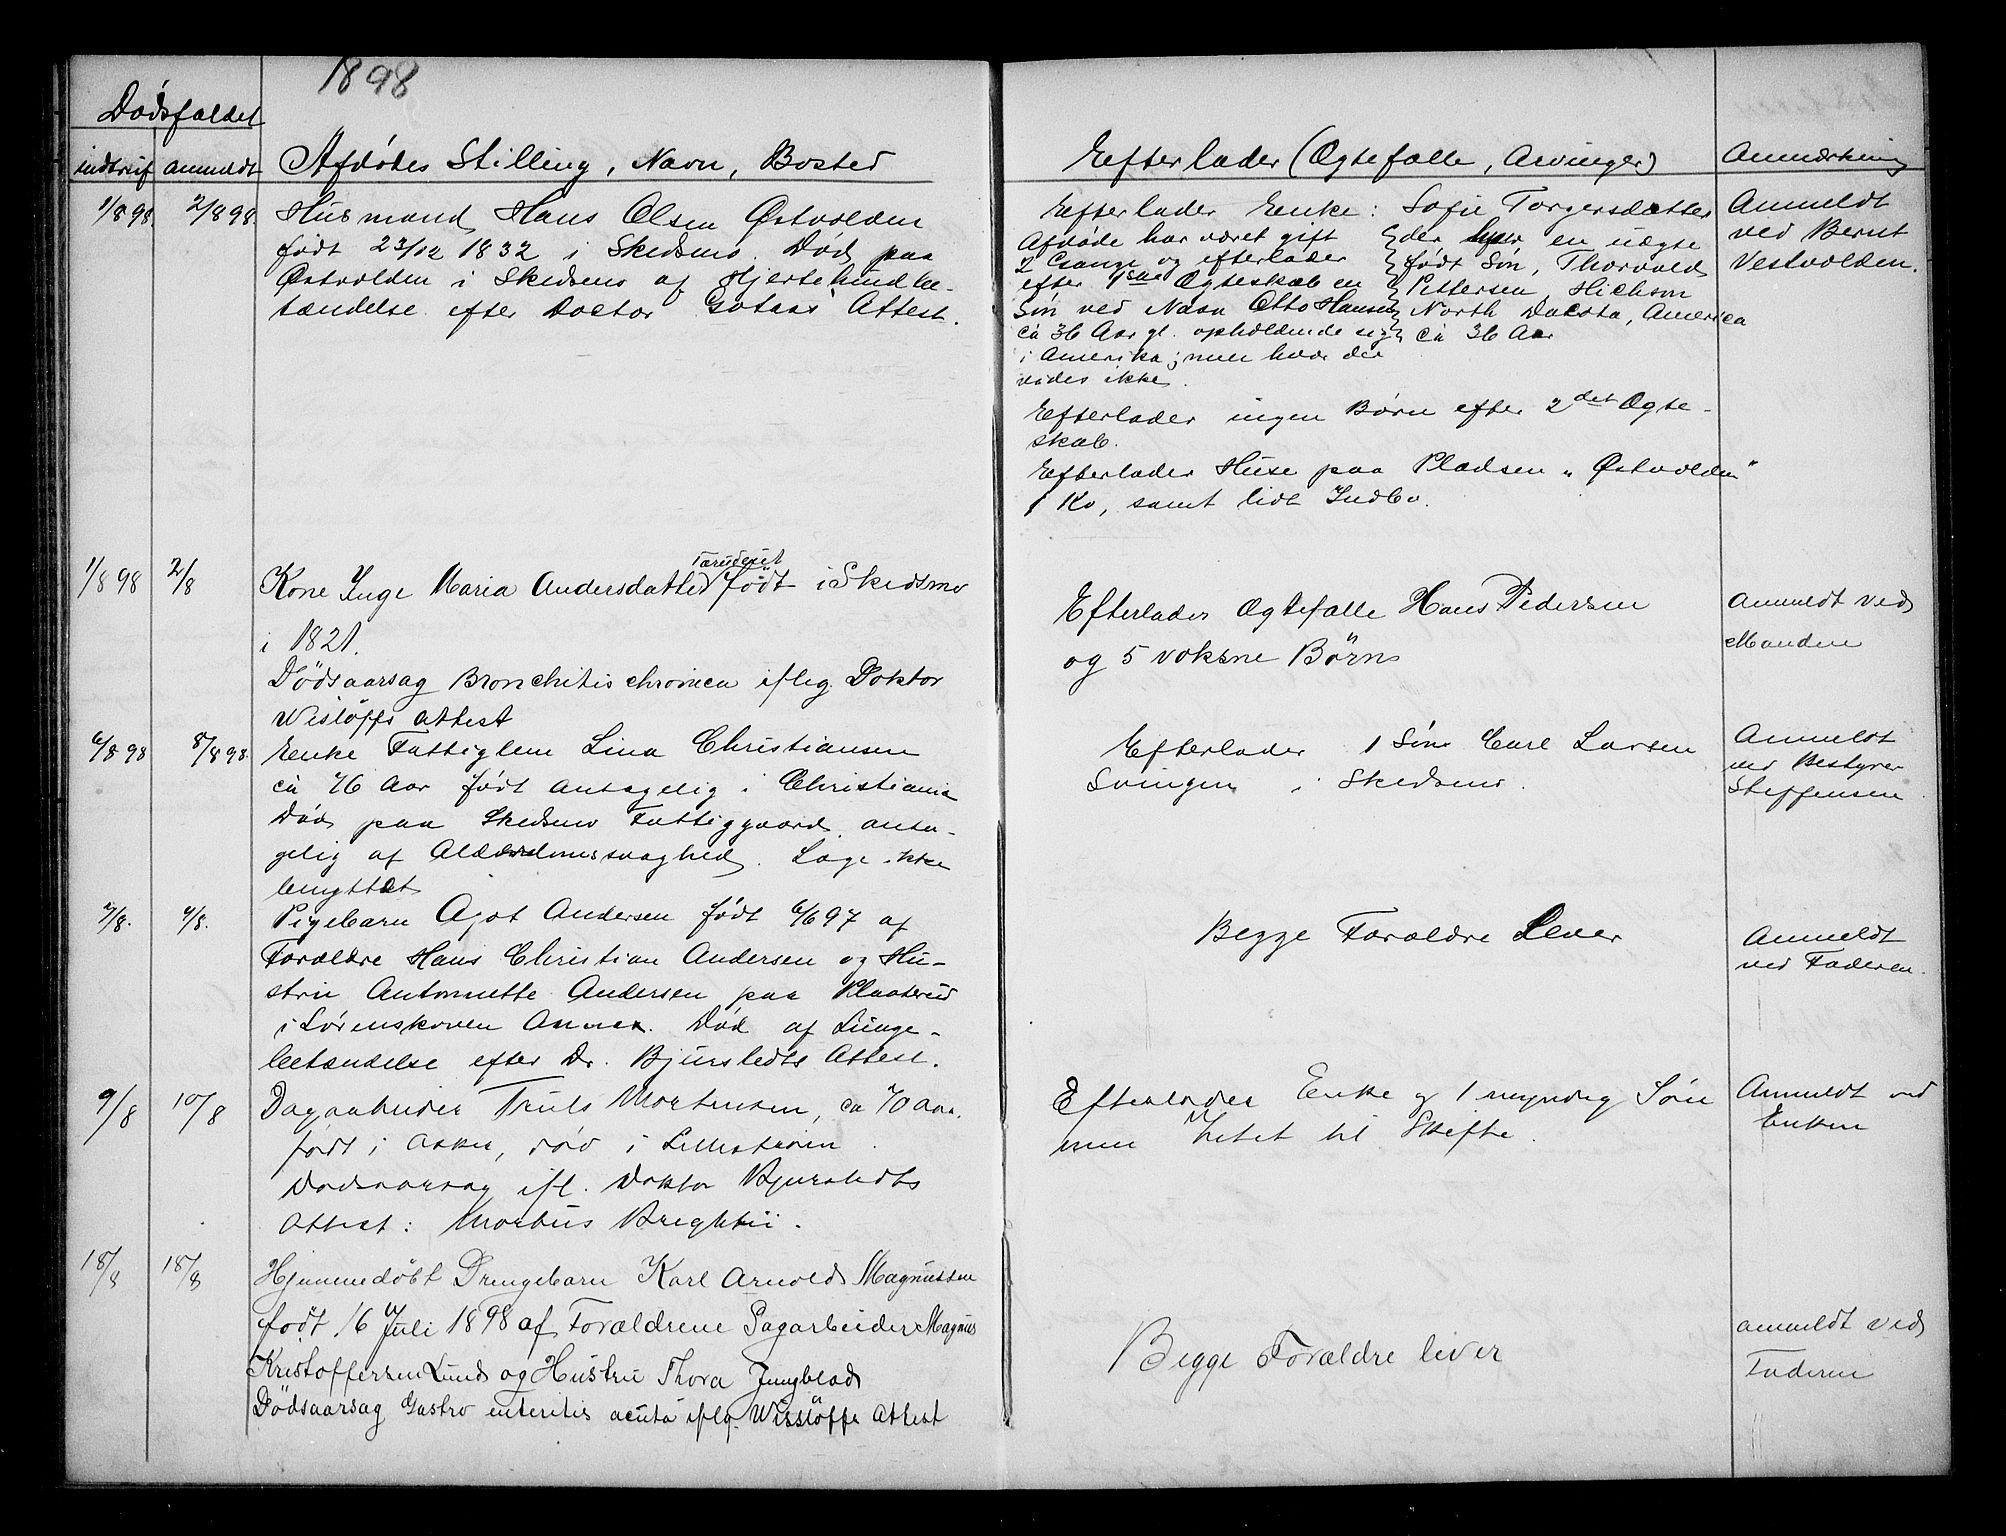 1898
Dødsfaldet
indtruf anmeldt Afdødes Stilling, Navn, Bosted
1/8 98 2/8 98 Husmand Hans Olsen Østvolden
født 23/12 1832 i Skedsmo. Død paa
Østvolden i Skedsmo af Hjertehindbe-
tændelse efter Doctor Gotaas Attest.
1/8 98 2/8 Kone Inge Maria Andersdatter Tærudexet født i Skedsmo
i 1821.
Dödsaarsag Bronchitis chronica iflig Doktor
Wislöffs attest
6/8 98 8/8 98 Enke Fattiglem Lina Christiansen
ca 76 Aar født antagelig i Christiania
Død paa Skedsmo Fattiggaard, anta-
gelig af Alderdomssvaghed. Læge ikke
benyttet
7/8. 9/8. Pigebarn Agot Andersen født 6/6 97 af
Forældre Hans Christian Andersen og Hu-
stru Antonnette Andersen paa Plaaterud
i Lørenskoven Annex. Død af Lunge-
betændelse efter Dr. Bjurstedts Attest.
9/8 10/8 Dagarbeider Truls Mortensen, ca 70 aar,
født i Asker, død i Lillestrøm.
Dødsaarsag ifl. Doktor Bjurstedts
Attest: Morbus Brightii.
18/8 18/8 Hjemmedöbt Drengebarn Karl Arnold Magnussen
født 16 Juli 1898 af Forældrene Sagarbeider Magnus
Kristoffersen Lund og Hustru Thora Jungblad
Dödsaarsag Gastro enteritis acuta iflg. Wisslöffs Attest
Efterlader (Ægtefælle, Arvinger) Anmærkning
Efterlader Enke: Sofie Torgersdatter
Afdøde har været gift
2 Gange og efterlader
efter 1ste Ægteskab en
Søn ved Navn Otto Hansen
ca 36 Aar gl. opholdende sig
i Amerika; men hvor der
vides ikke.
der har en uægte
født Søn, Thorvald
Pettersen Hickson
North Dacota, America
ca 36 Aar
Efterlader ingen Børn efter 2det Ægte-
skab.
Efterlader Huse paa Pladsen „Østvolden"
1 Ko, samt lidt Indbo.
Anmeldt
ved Bernt
Vestvolden.
Efterlader Ægtefælle Hans Pedersen
og 5 voksne Börn
anmeldt ved
Manden
Efterlader 1 Søn Carl Larsen
Svingen i Skedsmo.
Anmeldt
ved Bestyrer
Steffensen
Begge Forældre Lever
Anmeldt
ved Faderen.
Efterlader Enke og 1 myndig Søn
men Intet til Skifte.
Anmeldt ved
Enken
Begge Forældre lever
anmeldt ved
Faderen